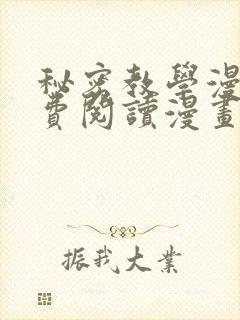 秘密教學漫
費閱讀漫畫
振我大業